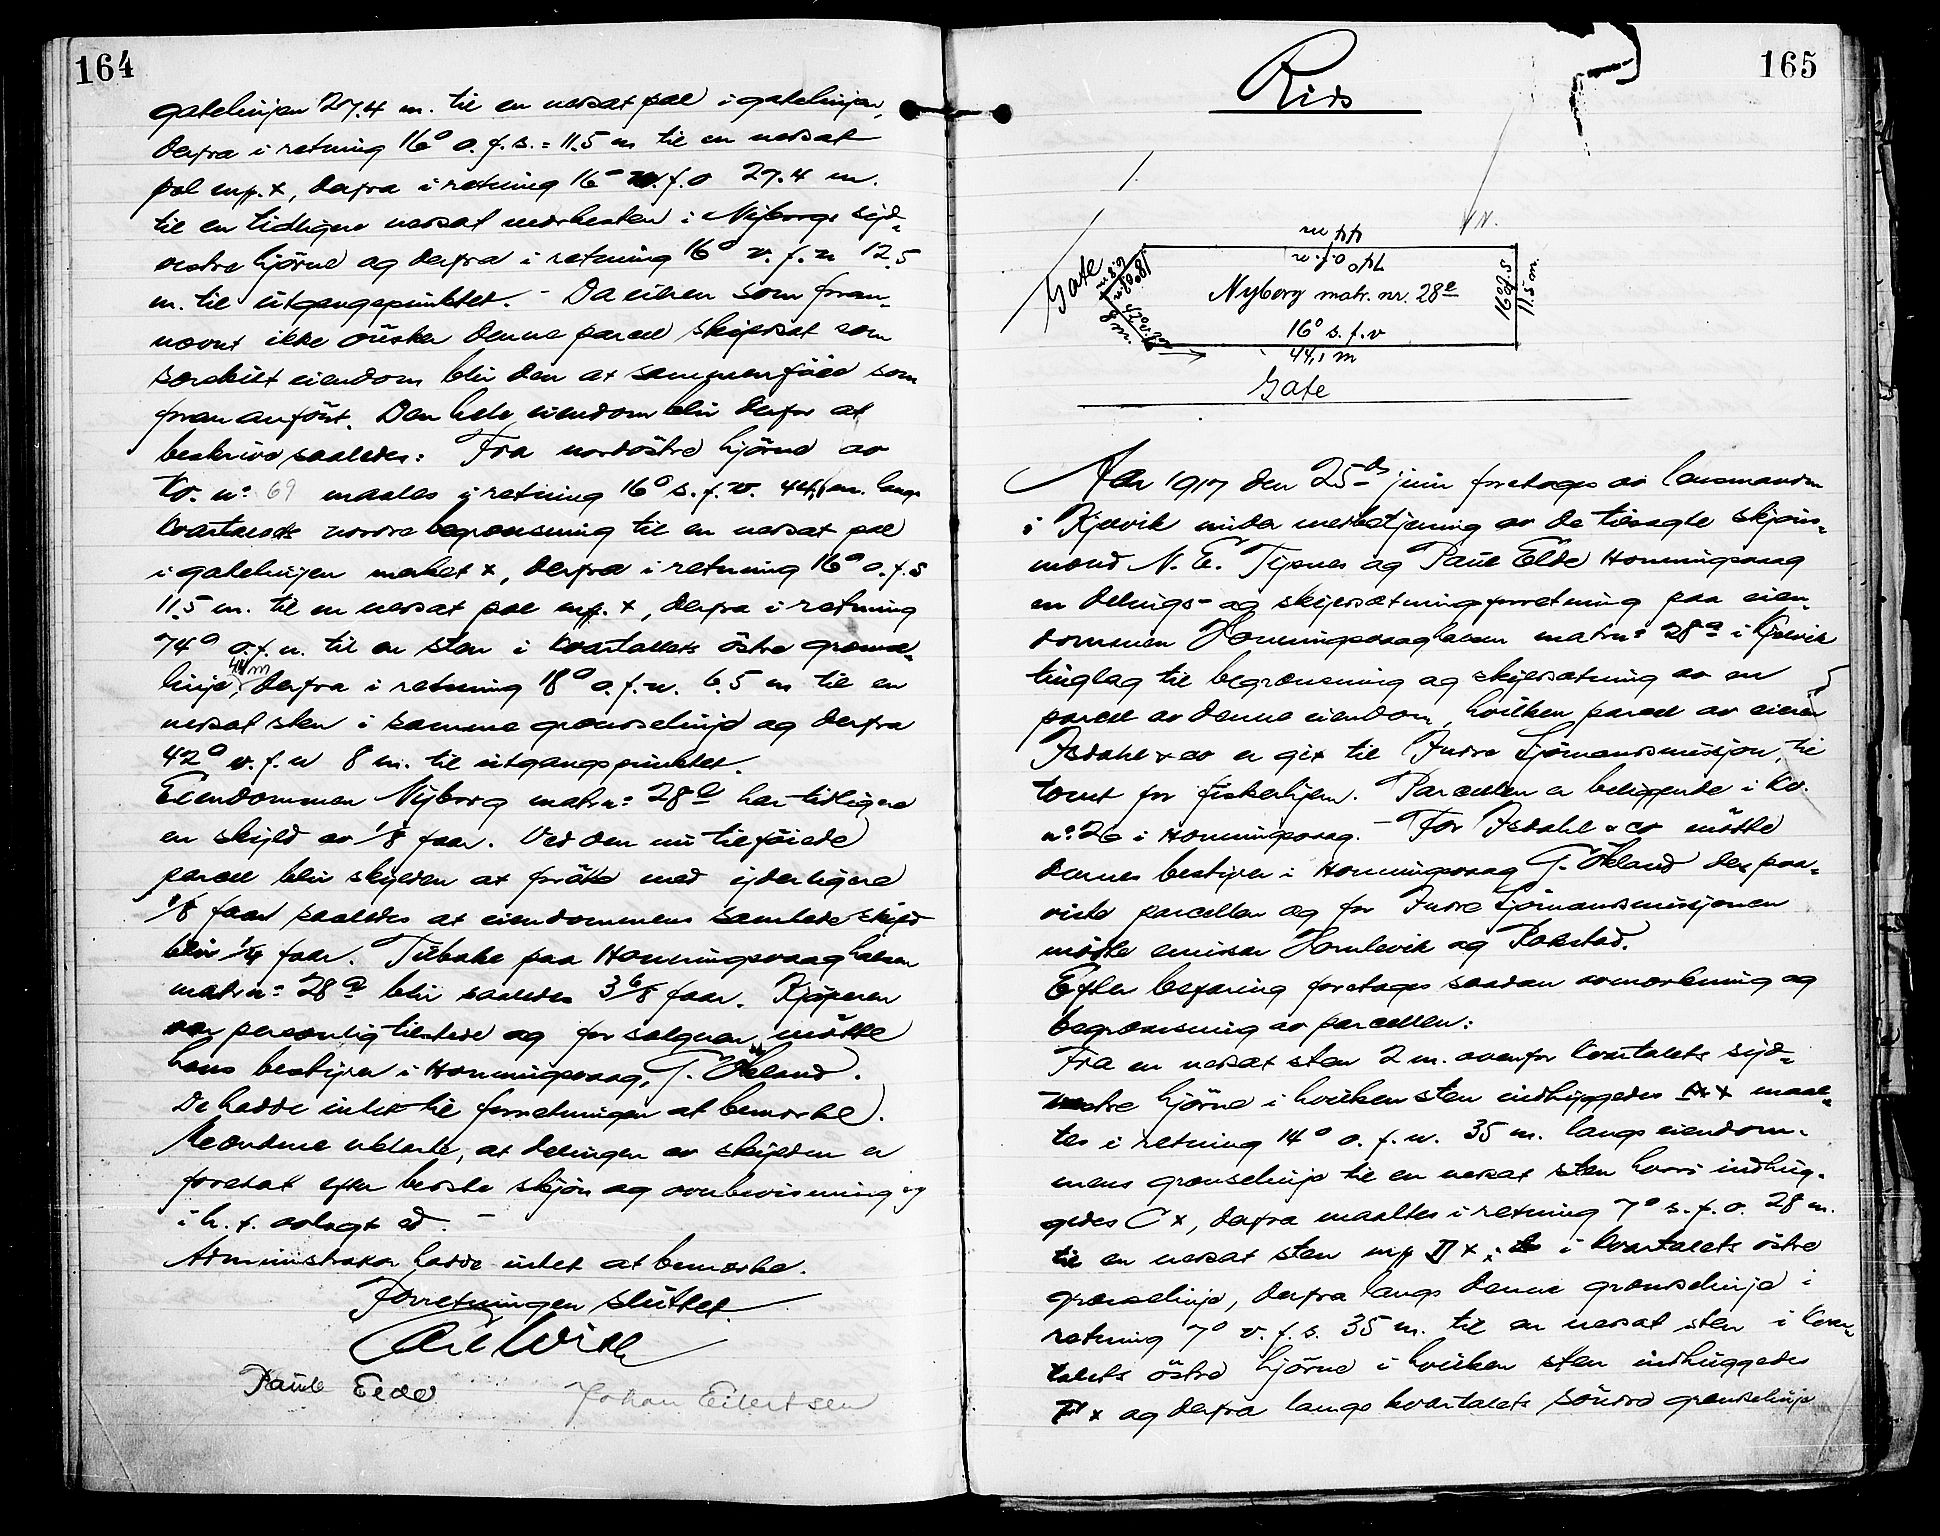 164
gatelinjen 27.4 m. til en nersat pæl i gatelinjen,
derfra i retning 16° o. f. s. = 11.5 m til en nersat
pæl mrk. x, derfra i retning 16° n. f. o 27.4 m.
til en tidligere nersat merkesten i Nyborgs syd-
vestre hjörne og derfra i retning 16° v. f. n 12.5
m. til utgangspunktet. - Da eieren som foran-
nævnt ikke önsker denne parcel skyldsat som
særskilt eiendom blir den at sammenföie som
foran anfört. Den hele eiendom blir derfor at
beskrive saaledes: Fra nordöstre hjörne av
Kv. nº 69 maales i retning 16° s. f. v. 44,1 m. langs
kvartalets nordre begrænsning til en nersat pæl
i gatelinjen merket x, derfra i retning 16° o. f. s
11.5 m. til en nersat pæl mrk. x, derfra i retning
74° o. f. n. til en sten i kvartalets östre grænse-
linje, 44 m derfra i retning 18° o. f. n. 6.5 m til en
nersat sten i samme grænselinje og derfra
42° v. f. n 8 m. til utgangspunktet.
Eiendommen Nyborg matr nº 28 e har tidligere
en skyld av 1/8 faar. Ved den nu tilföiede
parcel blir skylden at foröke med yderligere
1/8 faar saaledes at eiendommens samlede skyld
blir 1/4 faar. Tilbake paa Honningsvaag havn
matr nº 28 a blir saaledes 3 6/8 faar. Kjøperen
var personlig tilstede og for sælgeren mötte
hans bestyrer i Honningsvaag, T. Økland.
De hadde intet til forretningen at bemerke.
Mændene erklærte, at delingen av skylden er
foretat efter bedste skjön og overbevisning og
i h. t. avlagt ed. -
Administrator hadde intet at bemerke.
Forretningen sluttet.
Carl Wik
Paul Elde Johan Eilertsen
165
Rids
N.
44 m
74° o. f. n
Gate
6.5 m
18° o. f. n
8 m.
42° v. f. n
Nyborg matr. nr. 28 e
16° o. f. s
11.5 m.
16° s. f. v
44,1 m
Gate
Aar 1917 den 25 de juni foretages av lensmanden
i Kjelvik under medbetjening av de tilsagte skjöns-
mænd N. E. Tijsnes og Paul Elde Honningsvaag
en delings- og skyldsætningsforretning paa eien-
dommen Honningsvaag havn matr nº 28 a i Kjelvik
tinglag til begrænsning og skyldsætning av en
parcel av denne eiendom, hvilken parcel av eieren
Isdahl & co er git til Indre Sjömandsmission til
tomt for fiskerhjem. Parcellen er beliggende i kv.
nº 26 i Honningsvaag. - For Isdahl & co mötte
dennes bestyrer i Honningsvaag T. Økland der paa-
viste parcellen og for Indre Sjömandsmissjonen
mötte emissær Homlevik og Rokstad.
Efter befaring foretages saadan avmerkning og
begrænsning av parcellen:
Fra en nersat sten 2 m. ovenfor kvartalets syd-
vestre hjörne i hvilken sten indhuggedes A x maal-
tes i retning 14° o. f. n. 35 m. langs eiendom-
mens grænselinje til en nersat sten hvori indhug-
gedes C x, derfra maaltes i retning 7° s. f. o. 28 m.
til en nersat sten mrk D x, i kvartalets östre
grænselinje, derfra langs denne grænselinje i
retning 7° v. f. s. 35 m. til en nersat sten i kvar-
talets östre hjörne i hvilken sten indhuggedes
F x og derfra langs kvartalets söndre grænselinje